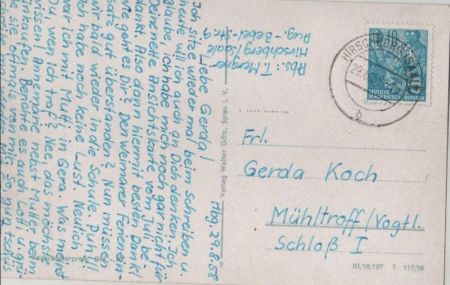 Hbg. 29.8.58
Liebe Gerda!
Ich sitze wieder mal beim Schreiben u.
heute will ich auch an Dich denken. Ich
glaube, ich habe mich noch gar nicht für
Deine nette Ansichtskarte vom Juli be-
dankt. Also dann hiermit besten Dank!
Wie geht es Dir? Den Weimarer Ferienein-
satz gut überstanden? Nun müssen
wir bald wieder in die Schule. Puh! Ich
habe noch keine Lust. Neulich
war ich mit Mutti in Gera. Was meinst
Du, wen ich traf? Nee, das möchst
wissen! Annemarie nebst Mutter beim
Einkaufen. Behalte es auch Lotti u. grü-
sie
mal von mir, so
Abs.: T. Mergner
Hirschberg/Saale
Aug.-Bebel-Str. 9
HIRSCHBERG (SAALE)
29.
b
DEUTSCHE
DEMOKRATISCHE REPUBLIK
Verlag Walter
1 V.
Frl.
Gerda Koch
Mühltroff/Vogtl.
Schloß I
III/18/197 T 117/58